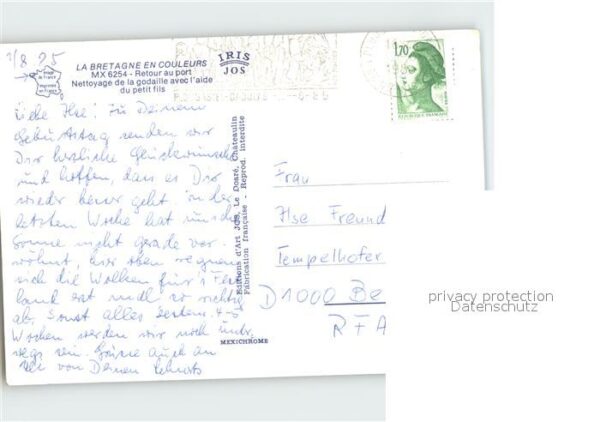 1/8 85
LA BRETAGNE EN COULEURS
MX 6254 - Retour au port
Nettoyage de la godaille avec l'aide
du petit fils
IRIS
JOS
Image de France
imprimée en France
1,70
REPUBLIQUE FRANÇAISE
Liebe Ilse! Zu Deinem
Geburtstag senden wir
Dir herzliche Glückwünsche
und hoffen, dass es Dir
wieder besser geht. In der
letzten Woche hat uns die
Sonne nicht gerade ver-
wöhnt, hier oben regnen
sich die Wolken fürs
land erst mal so richtig
ab. Sonst alles bestens. 4-5
Wochen werden wir noch unter-
wegs sein. Grüsse auch an
von Deinen
Editions d'Art JOS, Le Doaré, Châteaulin
Fabrication française - Reprod. interdite
MEXICHROME
Frau
Ilse Freund
Tempelhofer
D 1000 Be
RFA
privacy protection
Datenschutz